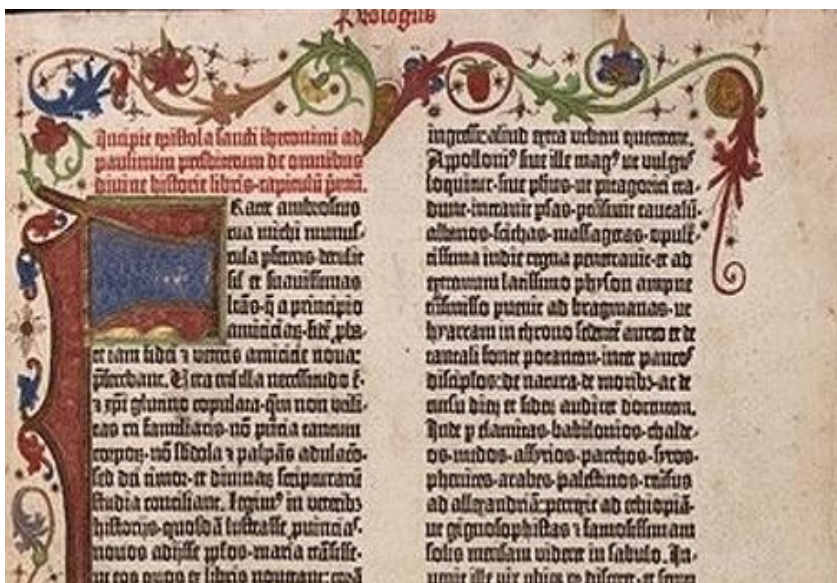 Prologus
Incipit epistola sancti iheronimi ad
paulinum presbiterum de omnibus
divine historie libris·capitulũ primũ.
Frater ambrosius
tua michi munus-
cula ꝑferens·detulit
sił et suavissimas
lr̃as·q̃ a principio
amiciciaꝝ·fidẽ ꝓba-
te iam fidei ⁊ veteris amicicie nova:
p̃ferebant. Vera eñi illa necessitudo ẽ·
⁊ xp̃i glutino copulata·q̃m non utili-
tas rei familiaris·nõ pñtia tantum
corpoꝝ·nõ sbdola ⁊ palpãs adulacõ·
sed dei timor·et divinaꝝ scripturarũ
studia conciliant. Legimꝰ in veteribꝫ
historijs·quosdã lustrasse ꝓuincias·
novos adijsse ꝓp̃los·maria trãsisse·
ut eos quos ex libris noverant: corã
ingressi: aliud extra urbem quererent.
Appolloniꝰ sive ille magꝰ ut vulgus
loquitur·sive ph̃us·ut pitagorici tra-
dunt·intravit ꝑsas·ꝑtransivit caucasũ·
albanos·scithas·massagetas·opulẽ-
tissima indie regna penetravit·et ad
extremum latissimo physon amne
trãsmisso ꝑvenit ad bragmanas·ut
hyarcam in throno sedentẽ aureo et de
tantali fonte potantem·inter paucos
discip̃los·de natura·de moribꝫ·ac de
cursu dieꝝ et sideꝝ audiret docentem.
Inde ꝑ elamitas·babilonios·chalde-
os·medos·assyrios·parthos·syros·
phenices·arabes·palestinos·reversus
ad allexandriã: perrexit ad ethiopiã·
ut gignosophistas ⁊ famosissimam
solis mensam videret in sabulo. In-
venit ille vir ubiqꝫ qd̃ disceret·et semper